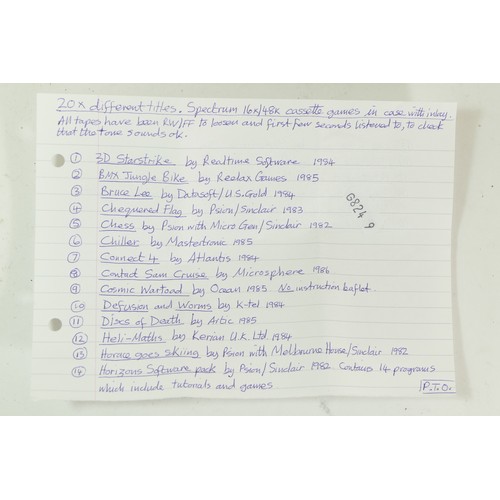 20x different titles. Spectrum 16K/48K cassette games in case with inlay.
All tapes have been RW/FF to loosen and first few seconds listened to, to check
that the tone sounds ok.
① 3D Starstrike by Realtime Software 1984
② BMX Jungle Bike by Reelax Games 1985
③ Bruce Lee by Datasoft/U.S. Gold 1984
④ Chequered Flag by Psion/Sinclair 1983
⑤ Chess by Psion with Micro Gen/Sinclair 1982
⑥ Chiller by Mastertronic 1985
⑦ Connect 4 by Atlantis 1984
⑧ Contact Sam Cruise by Microsphere 1986
⑨ Cosmic Wartoad by Ocean 1985 No instruction leaflet.
⑩ Defusion and Worms by K-tel 1984
⑪ Discs of Death by Artic 1985
⑫ Heli-Maths by Kerian U.K. Ltd. 1984
⑬ Horace goes skiing by Psion with Melbourne House/Sinclair 1982
⑭ Horizons Software pack by Psion/Sinclair 1982 Contains 14 programs
which include tutorials and games
P.T.O.
6824 9